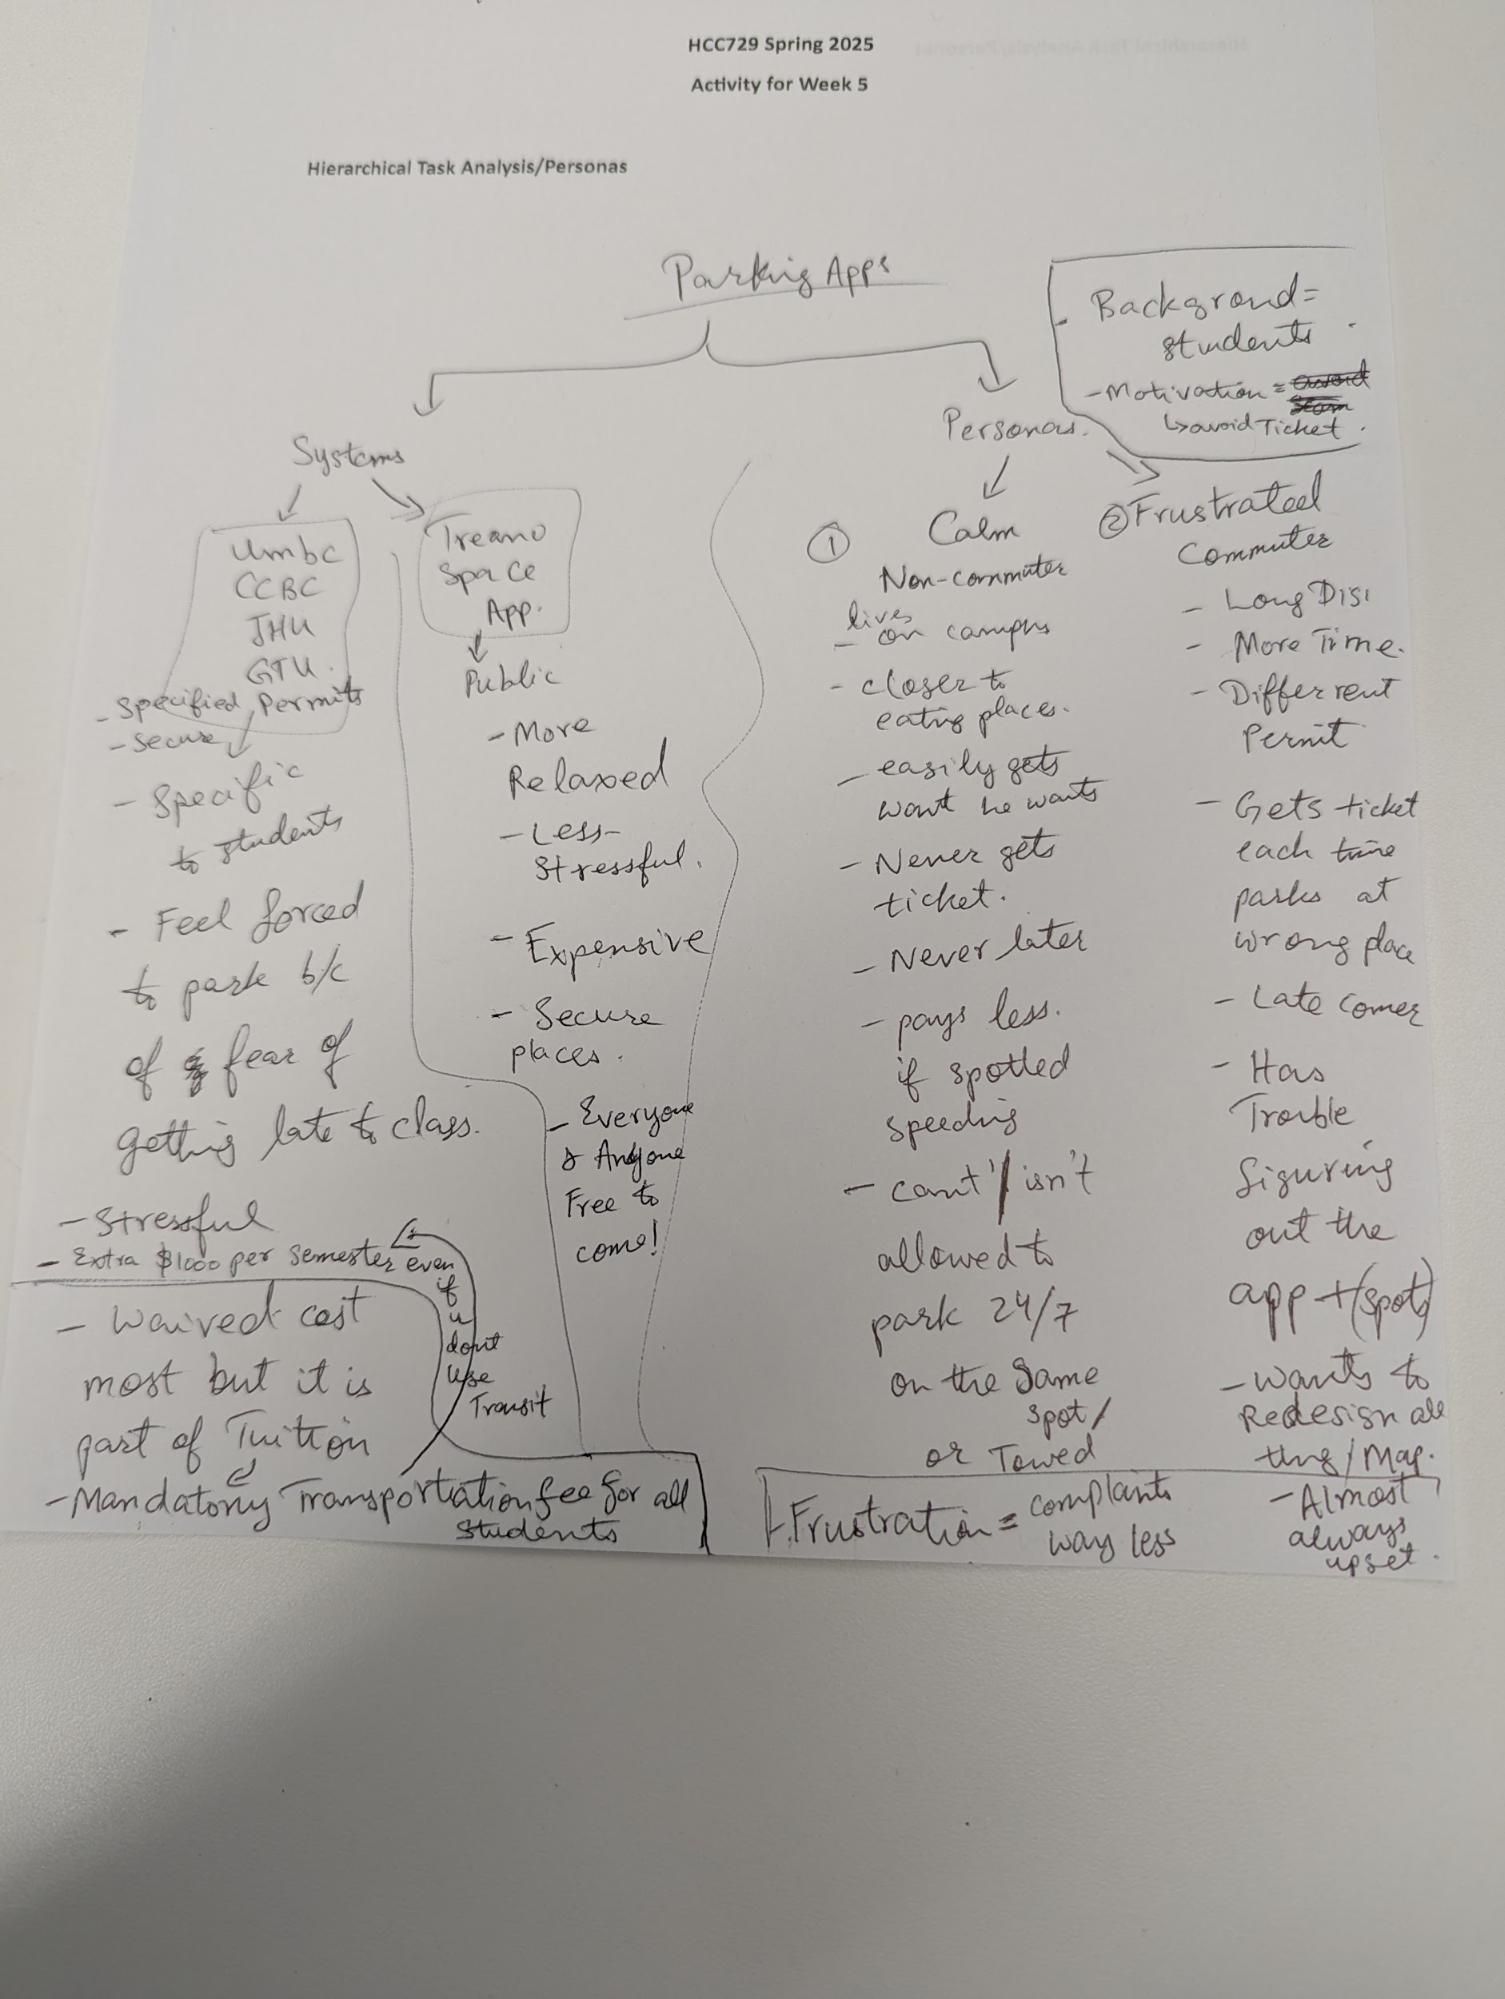 HCC729 Spring 2025
Activity for Week 5
Hierarchical Task Analysis/Personas
Parking Apps
Background =
students
- Motivation =
↳ avoid Ticket.
Systems
Umbc
CCBC
JHU
GTU.
- Specified Permits
- Secure
- Specific
to students
- Feel forced
to park b/c
of fear of
getting late to class.
- Stressful
- Extra $1000 per semester even
if
u
dont
use
Transit
- Waived cost
most but it is
part of Tuition
- Mandatory Transportation fee for all
students
Space
App.
Public
- More
Relaxed
- Less-
Stressful.
- Expensive
- Secure
places.
- Everyone
& Anyone
Free to
come!
Personas.
① Calm
Non-commuter
lives
- on campus
- closer to
eating places.
- easily gets
want he wants
- Never gets
ticket.
- Never later
- pays less.
if spotted
speeding
- cant'/isn't
allowed to
park 24/7
on the Same
spot/
or Towed
② Frustrated
Commuter
- Long Dis
- More Time.
- Differrent
Permit
- Gets ticket
each time
parks at
wrong place
- Late comer
- Has
Trouble
figuring
out the
app + (spots)
- Wants to
Redesign all
thng / Map.
- Frustration = complaints
way less
- Almost
always
upset.